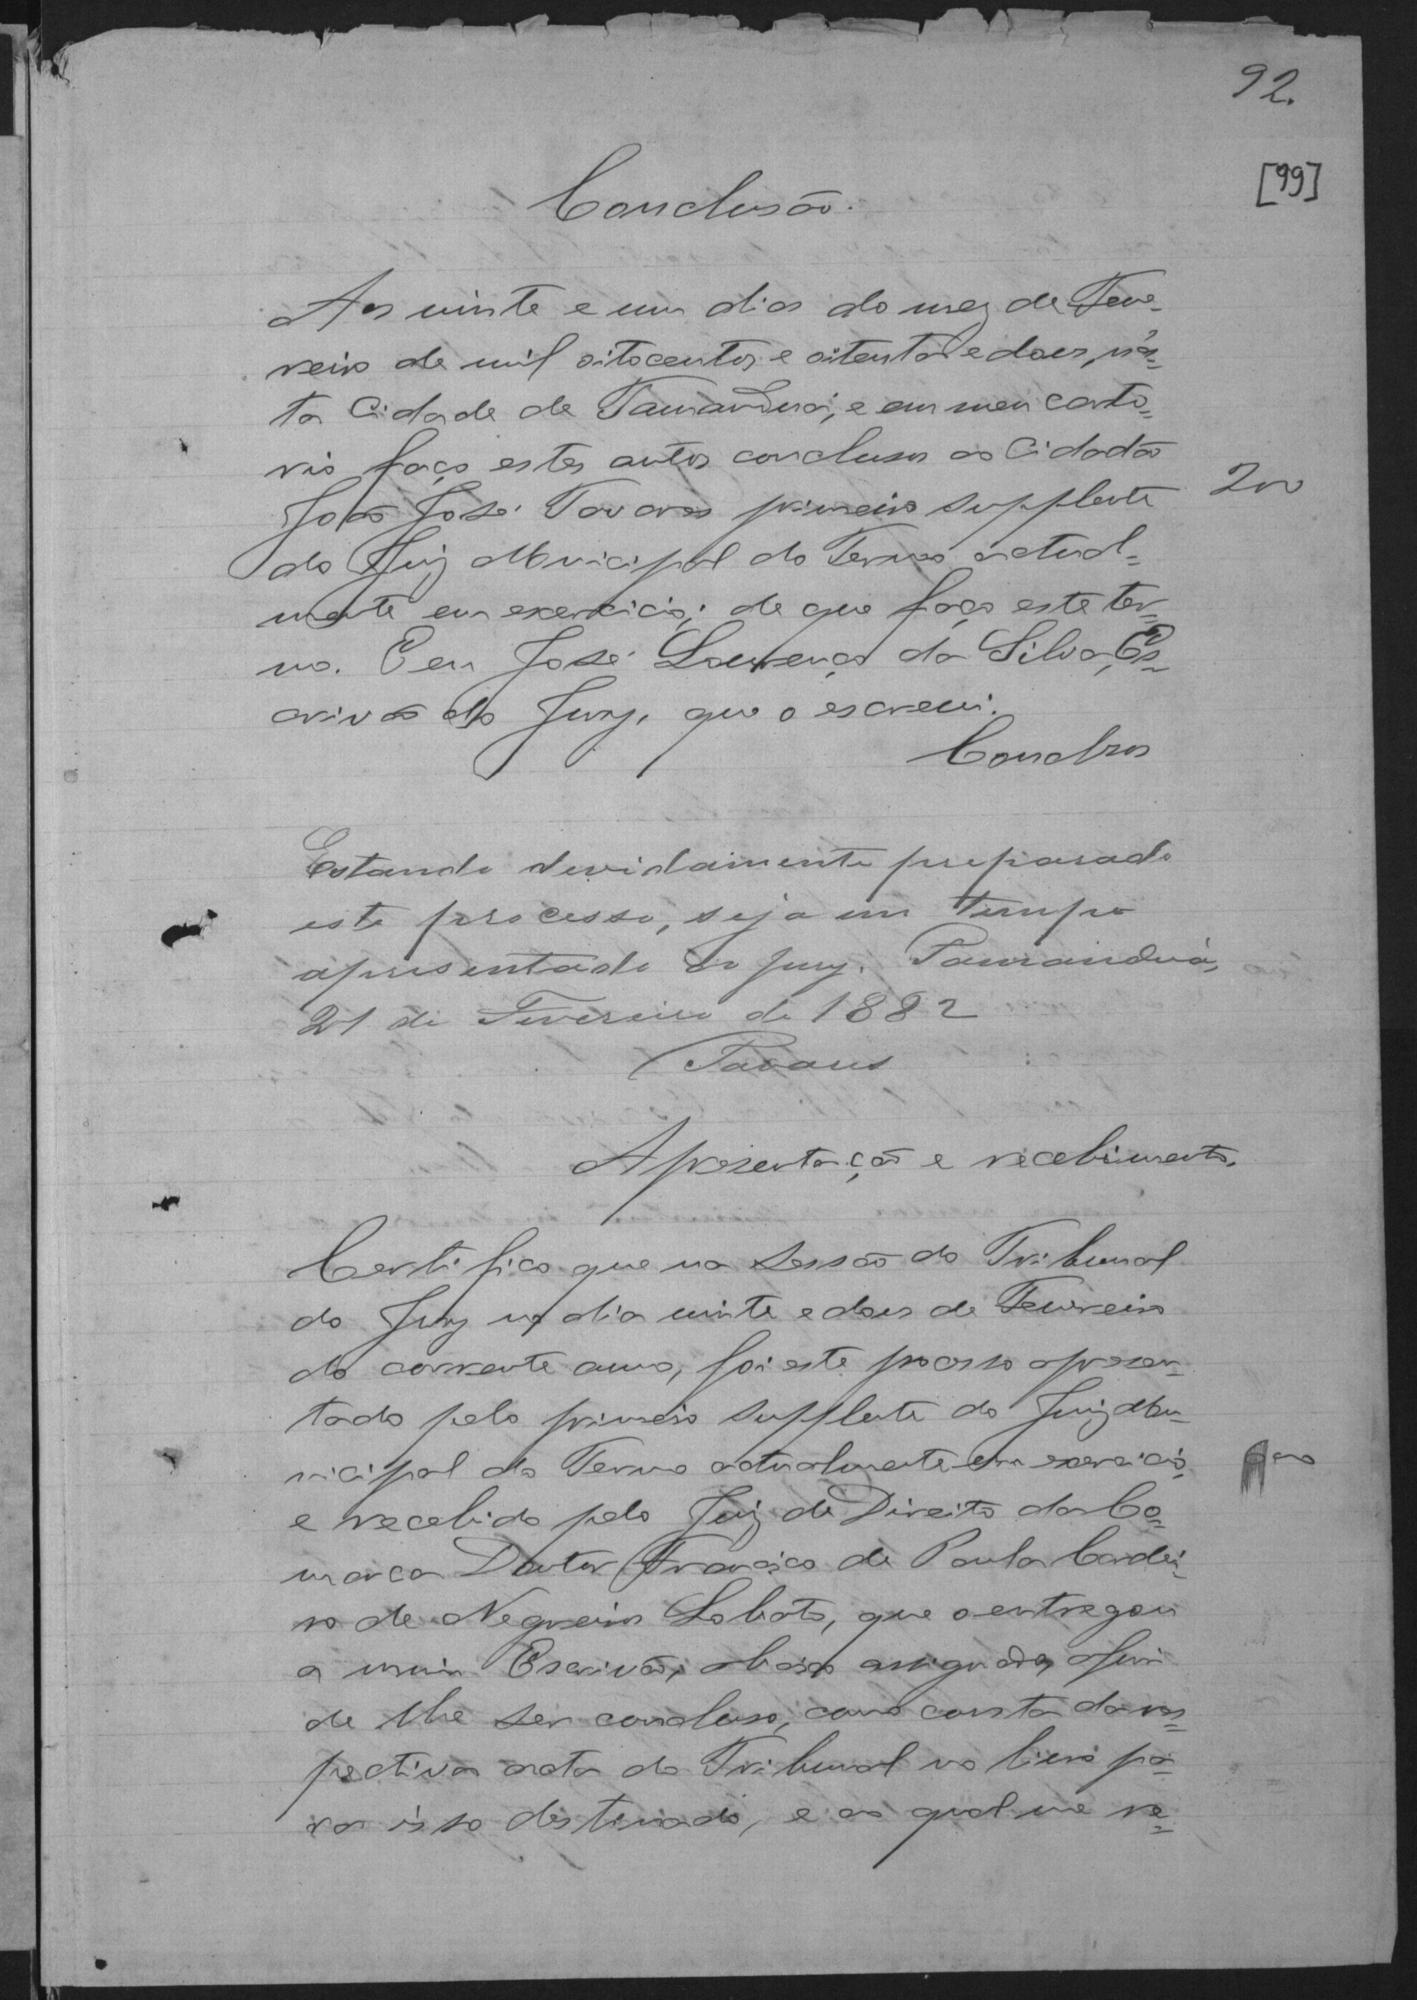 92.
[99]
Conclusão.
Aos vinte e um dias do mez de Feve-
reiro de mil oitocentos e oitenta e dous, n'es-
ta Cidade de Tamanduá, e em meu carto-
rio faço estes autos conclusos ao Cidadão
João José Tavares primeiro supplente 200
do Juiz Municipal do Termo actual-
mente em exercicio; de que faço este ter-
mo. Eu José Lourenço da Silva, Es-
crivão do Jury, que o escrevi.
Conclusos
Estando devidamente preparado
este processo, seja em tempo
apresentado ao Jury. Tamanduá,
21 de Fevereiro de 1882
Tavares
Apresentação e recebimento.
Certifico que na sessão do Tribunal
do Jury no dia vinte e dous de Fevereiro
do corrente anno, foi este processo apresen-
tado pelo primeiro supplente do Juiz Mu-
nicipal do Termo actualmente em exercicio,
e recebido pelo Juiz de Direito da Co-
marca Doutor Francisco de Paula Cordei-
ro de Negreiros Lobato, que o entregou
a mim Escrivão, abaixo assignado, afim
de lhe ser concluso, como consta da res-
pectiva acta do Tribunal no livro pa-
ra isso destinado, e ao qual me re-